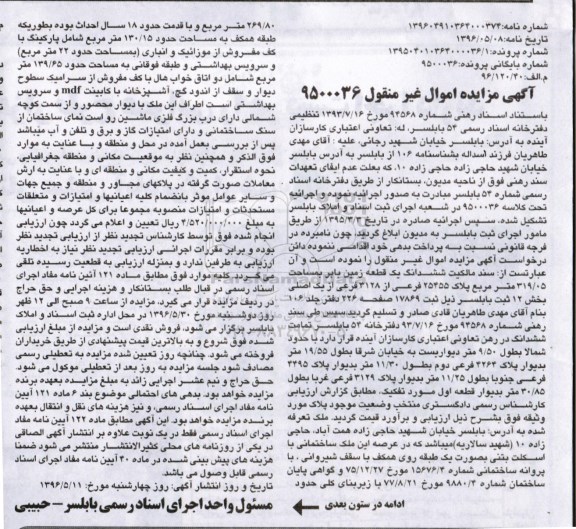 شماره نامه:۱۳۹۶۰۴۹۱۰۳۶۴۰۰۰۳۷۴
تاریخ نامه:۱۳۹۶/۰۵/۰۸
شماره پرونده:۱۳۹۵۰۴۰۱۰۳۶۴۰۰۰۰۳۶/۱
شماره بایگانی پرونده:۹۵۰۰۰۳۶
م.الف:۹۶/۱۲۰/۴۰
آگهی مزایده اموال غیر منقول ۹۵۰۰۰۳۶
باستناد اسناد رهنی شماره ۹۴۵۶۸ مورخ ۱۳۹۳/۷/۱۶ تنظیمی
دفترخانه اسناد رسمی ۵۳ بابلسر، له: تعاونی اعتباری کارسازان
آینده به آدرس: بابلسر خیابان شهید رجائی، علیه: آقای مهدی
طاهریان فرزند اسداله بشناسنامه ۱۰۶ از بابلسر به آدرس بابلسر
خیابان شهید حاجی زاده حاجی زاده ۱۰، که بعلت عدم ایفای تعهدات
سند رهنی فوق از ناحیه مدیون، بستانکار از طریق دفترخانه اسناد
رسمی شماره ۵۳ بابلسر مبادرت به صدور اجرائیه نموده و اجرائیه
تحت کلاسه ۹۵۰۰۰۳۶ در شعبه اجرای ثبت اسناد و املاک بابلسر
تشکیل شده، سپس اجرائیه صادره در تاریخ ۱۳۹۵/۳/۳ از طریق
مامور اجرای ثبت بابلسر به مدیون ابلاغ گردید، چون نامبرده در
فرجه قانونی نسبت به پرداخت بدهی خود اقدامی ننموده دائن
درخواست آگهی مزایده اموال غیر منقول را نموده است و آن
عبارتست از: سند مالکیت ششدانگ یک قطعه زمین بابر بمساحت
۳۱۹/۰۵ متر مربع پلاک ۲۵۴۵۵ فرعی از ۳۱۲۸ فرعی از یک اصلی
بخش ۱۲ ثبت بابلسر ذیل ثبت ۱۷۸۶۹ صفحه ۲۲۶ دفتر جلد ۱۰۶
بنام آقای مهدی طاهریان قادی صادر و تسلیم گردید سپس طی سند
رهنی شماره ۹۴۵۶۸ مورخ ۹۳/۷/۱۶ دفترخانه ۵۳ بابلسر تمامت
ششدانگ در رهن تعاونی اعتباری کارسازان آینده قرار دارد با حدود
شمالا بطول ۹/۵۰ متر دیواریست به خیابان شرقا بطول ۱۹/۵۵ متر
بدیوار پلاک ۴۲۶۳ فرعی دوم بطول ۱۱/۳۰ متر بدیوار پلاک ۴۴۹۵
فرعی جنوبا بطول ۱۱/۲۵ متر بدیوار پلاک ۳۱۲۹ فرعی غربا بطول
۳۰/۸۵ متر بدیوار قطعه اول مورد تفکیک. مطابق گزارش ارزیابی
کارشناس رسمی دادگستری منتخب وضعیت موجود پلاک مورد
وثیقه فوق بشرح ذیل ارزیابی و برآورد قیمت گردید. ملک تعرفه
شده به آدرس: بابلسر خیابان شهید حاجی زاده همت آباد، حاجی
زاده ۱۰ (شهید سالاریه)میباشد که در عرصه این ملک ساختمانی با
اسکلت بتنی بصورت یک طبقه روی همکف با سقف شیروانی ، با
پروانه ساختمانی شماره ۱۵۶۷۶/۴ مورخ ۷۵/۱۲/۲۷ و گواهی پایان
ساختمان شماره ۹۸۸۰/۴ مورخ ۷۷/۸/۲۱ با زیربنای کلی حدود
ادامه در ستون بعدی
۲۶۹/۸۰ متر مربع و با قدمت حدود ۱۸ سال احداث بوده بطوریکه
طبقه همکف به مساحت حدود ۱۳۰/۱۵ متر مربع شامل پارکینگ با
کف مفروش از موزائیک و انباری (بمساحت حدود ۲۲ متر مربع)
و سرویس بهداشتی و طبقه فوقانی به مساحت حدود ۱۳۹/۶۵ متر
مربع شامل دو اتاق خواب هال با کف مفروش از سرامیک سطوح
دیوار و سقف از اندود گچ، آشپزخانه با کابینت mdf و سرویس
بهداشتی است اطراف این ملک با دیوار محصور و از سمت کوچه
شمالی دارای درب بزرگ فلزی ماشین رو است نمای ساختمان از
سنگ ساختمانی و دارای امتیازات گاز و برق و تلفن و آب میباشد
پس از بررسی بعمل آمده در محل و منطقه و با عنایت به موارد
فوق الذکر و همچنین نظر به موقعیت مکانی و منطقه جغرافیایی،
نحوه استقرار، کمیت و کیفیت مکانی و منطقه ای و با عنایت به ارش
معاملات صورت گرفته در پلاکهای مجاور و منطقه و جمیع جهات
و سایر عوامل موثر بانضمام کلیه اعیانیها و امتیازات و متعلقات
مستحدثات و امتیازات منصوبه مجموعا برای کل عرصه و اعیانیها
به مبلغ ۴/۵۲۰/۰۰۰/۰۰۰ ریال تعیین و اعلام می گردد چون ارزیابی
انجام شده فوق توسط کارشناس تجدید نظر از ارزیابی تجدید نظر
بوده و برابر مقررات اجرائی ارزیابی تجدید نظر نیاز به اخطاریه
ارزیابی به طرفین ندارد و بمنزله ارزیابی به قطعیت رسیده تلقی
می گردید کلیه موارد فوق مطابق ماده ۱۲۱ آئین نامه مفاد اجرای
اسناد رسمی در قبال طلب بستانکار و هزینه اجرایی و حق حراج
در ردیف مزایده قرار می گیرد. مزایده از ساعت ۹ صبح الی ۱۲ ظهر
روز دوشنبه مورخ ۱۳۹۶/۵/۳۰ در محل اداره ثبت اسناد و املاک
بابلسر برگزار می شود. فروش نقدی است و مزایده از مبلغ ارزیابی
شده فوق شروع و به بالاترین قیمت پیشنهادی از طریق خریداران
فروخته می شود. چنانچه روز تعیین شده مزایده به تعطیلی رسمی
مصادف شود جلسه مزایده به روز بعد از تعطیلی موکول می شود.
حق حراج و نیم عشر اجرایی زائد به مبلغ مزایده بعهده برنده
مزایده خواهد بود. بدهی های احتمالی موضوع بند ۶ ماده ۱۲۱ آیین
نامه مفاد اجرای اسناد رسمی، و نیز هزینه های نقل و انتقال بعهده
برنده مزایده خواهد بود. این آگهی مطابق ماده ۱۲۲ آئین نامه مفاد
اجرای اسناد رسمی فقط در یک نوبت علاوه بر انتشار آگهی الصاقی
در یکی از روزنامه های محلی کثیرالانتشار منتشر می شود ضمنا
هزینه های پیش بینی شده در ماده ۴۰ آئین نامه مفاد اجرای اسناد
رسمی قابل وصول می باشد.
تاریخ و روز انتشار آگهی: روز چهارشنبه مورخ: ۱۳۹۶/۵/۱۱
مسئول واحد اجرای اسناد رسمی بابلسر – حبیبی